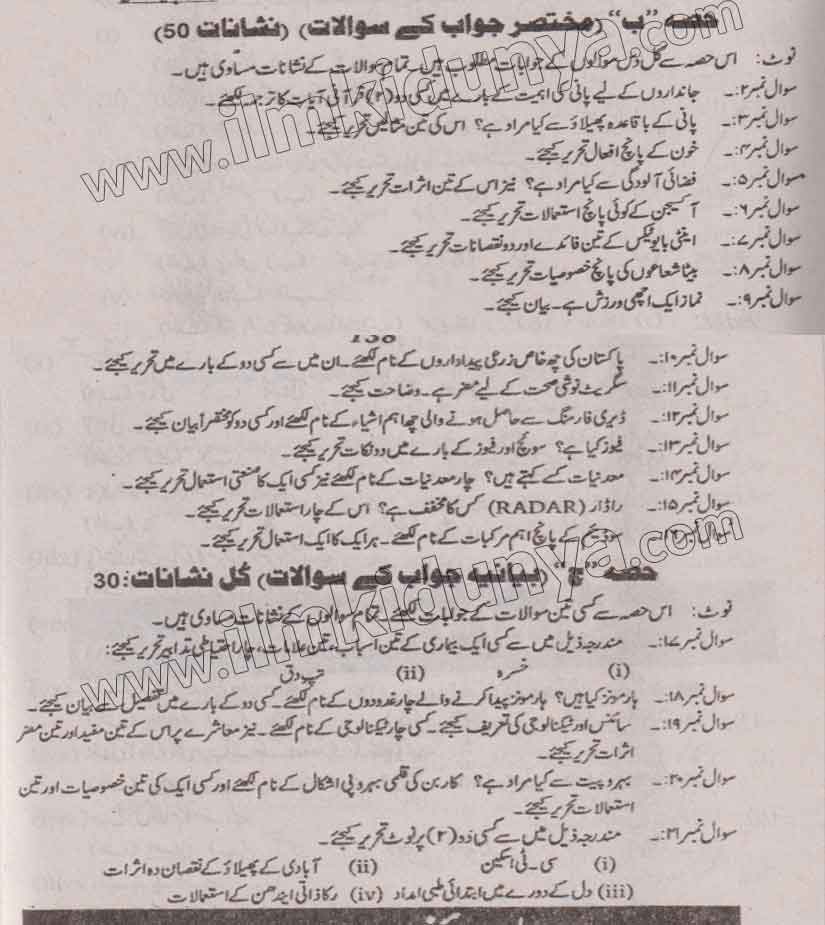 حصہ ”ب“ (مختصر جواب کے سوالات) (نشانات 50)
نوٹ: اس حصہ سے کل دس سوالوں کے جوابات مطلوب ہیں۔ تمام سوالات کے نشانات مساوی ہیں۔
سوال نمبر ۲:۔ جانداروں کے لیے پانی کی اہمیت کے بارے میں کی دو (۲) قرآنی آیات کا ترجمہ لکھئے۔
سوال نمبر ۳:۔ پانی کے باقاعدہ پھیلاؤ سے کیا مراد ہے؟ اس کی تین مثالیں تحریر کیجئے۔
سوال نمبر ۴:۔ خون کے پانچ افعال تحریر کیجئے۔
سوال نمبر ۵:۔ فضائی آلودگی سے کیا مراد ہے؟ نیز اس کے تین اثرات تحریر کیجئے۔
سوال نمبر ۶:۔ آکسیجن کے کوئی پانچ استعمالات تحریر کیجئے۔
سوال نمبر ۷:۔ اینٹی بایوٹیکس کے تین فائدے اور دو نقصانات تحریر کیجئے۔
سوال نمبر ۸:۔ بیٹا شعاعوں کی پانچ خصوصیات تحریر کیجئے۔
سوال نمبر ۹:۔ نماز ایک اچھی ورزش ہے۔ بیان کیجئے۔
سوال نمبر ۱۰:۔ پاکستان کی چھ خاص زرعی پیداداروں کے نام لکھئے۔ ان میں سے کسی دو کے بارے میں تحریر کیجئے۔
سوال نمبر ۱۱:۔ سگریٹ نوشی صحت کے لیے مضر ہے۔ وضاحت کیجئے۔
سوال نمبر ۱۲:۔ ڈیری فارمنگ سے حاصل ہونے والی چھ اہم اشیاء کے نام لکھئے اور کسی دو کو مختصراً بیان کیجئے۔
سوال نمبر ۱۳:۔ فیوز کیا ہے؟ سوئچ اور فیوز کے بارے میں دو نکات تحریر کیجئے۔
سوال نمبر ۱۴:۔ معدنیات کسے کہتے ہیں؟ چار معدنیات کے نام لکھئے نیز کسی ایک کا صنعتی استعمال تحریر کیجئے۔
سوال نمبر ۱۵:۔ راڈار (RADAR) کس کا مخفف ہے؟ اس کے چار استعمالات تحریر کیجئے۔
سوال نمبر ۱۶:۔ سوڈیم کے پانچ اہم مرکبات کے نام لکھئے۔ ہر ایک کا ایک استعمال تحریر کیجئے۔
حصہ ”ج“ (بیانیہ جواب کے سوالات) کل نشانات: 30
نوٹ: اس حصہ سے کسی تین سوالات کے جوابات لکھئے۔ تمام سوالوں کے نشانات مساوی ہیں۔
سوال نمبر ۱۷:۔ مندرجہ ذیل میں سے کسی ایک بیماری کے تین اسباب، تین علامات، چار احتیاطی تدابیر تحریر کیجئے:
(i) خسرہ (ii) تپ دق
سوال نمبر ۱۸:۔ ہارمونز کیا ہیں؟ ہارمونز پیدا کرنے والے چار غدودوں کے نام لکھئے۔ کسی دو کے بارے میں تفصیل سے بیان کیجئے۔
سوال نمبر ۱۹:۔ سائنس اور ٹیکنالوجی کی تعریف کیجئے۔ کسی چار ٹیکنالوجی کے نام لکھئے۔ نیز معاشرے پر اس کے تین مفید اور تین مضر
اثرات تحریر کیجئے۔
سوال نمبر ۲۰:۔ بہروپیت سے کیا مراد ہے؟ کاربن کی قلمی بہروپی اشکال کے نام لکھئے اور کسی ایک کی تین خصوصیات اور تین
استعمالات تحریر کیجئے۔
سوال نمبر ۲۱:۔ مندرجہ ذیل میں سے کسی دو (۲) پر نوٹ تحریر کیجئے۔
(i) سی۔ٹی اسکین (ii) آبادی کے پھیلاؤ کے نقصان دہ اثرات
(iii) دل کے دورے میں ابتدائی طبی امداد (iv) رکازاتی ایندھن کے استعمالات
www.ilmkidunya.com
www.ilmkidunya.com
www.ilmkidunya.com